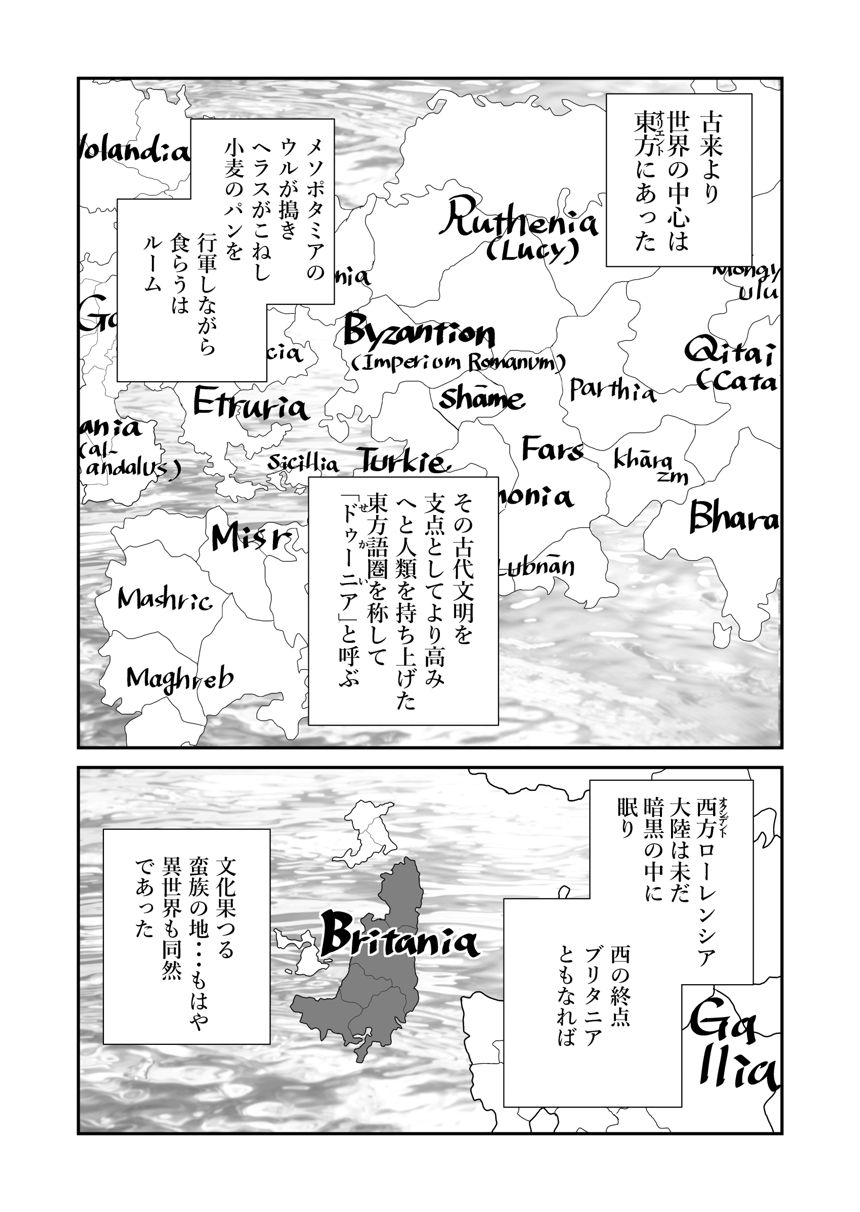 古来より
世界の中心は
東方にあった
オリエント
メソポタミアの
ウルが搗き
ヘラスがこねし
小麦のパンを
行軍しながら
食らうは
ルーム
olandia
Ruthenia
(Lucy)
Mongy
ulu
nia
Ga
Byzantion
(Imperium Romanum)
Qitai
(Cata
cia
Shāme
Parthia
Etruria
ania
(al-
andalus)
Sicillia
Turkie
Fars
khāra
zm
Bhara
monia
Misr
Lubnān
Mashric
Maghreb
その古代文明を
支点としてより高み
へと人類を持ち上げた
東方語圏を称して
「ドゥーニア」と呼ぶ
せかい
西方ローレンシア
オクシデント
大陸は未だ
暗黒の中に
眠り
西の終点
ブリタニア
ともなれば
Britania
Ga
llia
文化果つる
蛮族の地・・・もはや
異世界も同然
であった